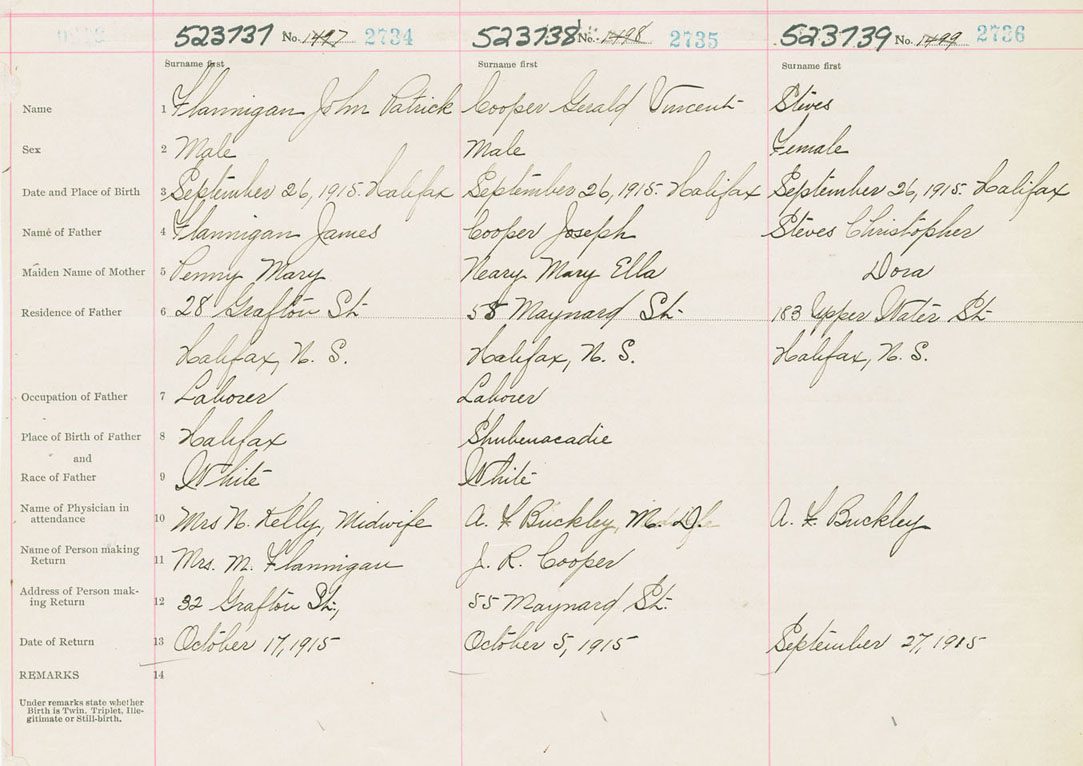 523737 No. 1497 2734 523738 No. 1498 2735 523739 No. 1499 2736
Surname first Surname first Surname first
Name 1 Flannigan John Patrick Cooper Gerald Vincent Steves
Sex 2 Male Male Female
Date and Place of Birth 3 September 26, 1915. Halifax September 26, 1915. Halifax September 26, 1915. Halifax
Name of Father 4 Flannigan James Cooper Joseph Steves Christopher
Maiden Name of Mother 5 Penny Mary Neary Mary Ella Dora
Residence of Father 6 28 Grafton St. Maynard St. 183 Upper Water St.
Halifax, N. S. Halifax, N. S. Halifax, N. S.
Occupation of Father 7 Laborer Laborer
Place of Birth of Father 8 Halifax Shubenacadie
and
Race of Father 9 White White
Name of Physician in
attendance 10 Mrs N. Kelly, Midwife A. F. Buckley, M. D. A. F. Buckley
Name of Person making
Return 11 Mrs. M. Flannigan J. R. Cooper
Address of Person mak-
ing Return 12 32 Grafton St., 55 Maynard St.
Date of Return 13 October 17, 1915 October 5, 1915 September 27, 1915
REMARKS 14
Under remarks state whether
Birth is Twin, Triplet, Ille-
gitimate or Still-birth.